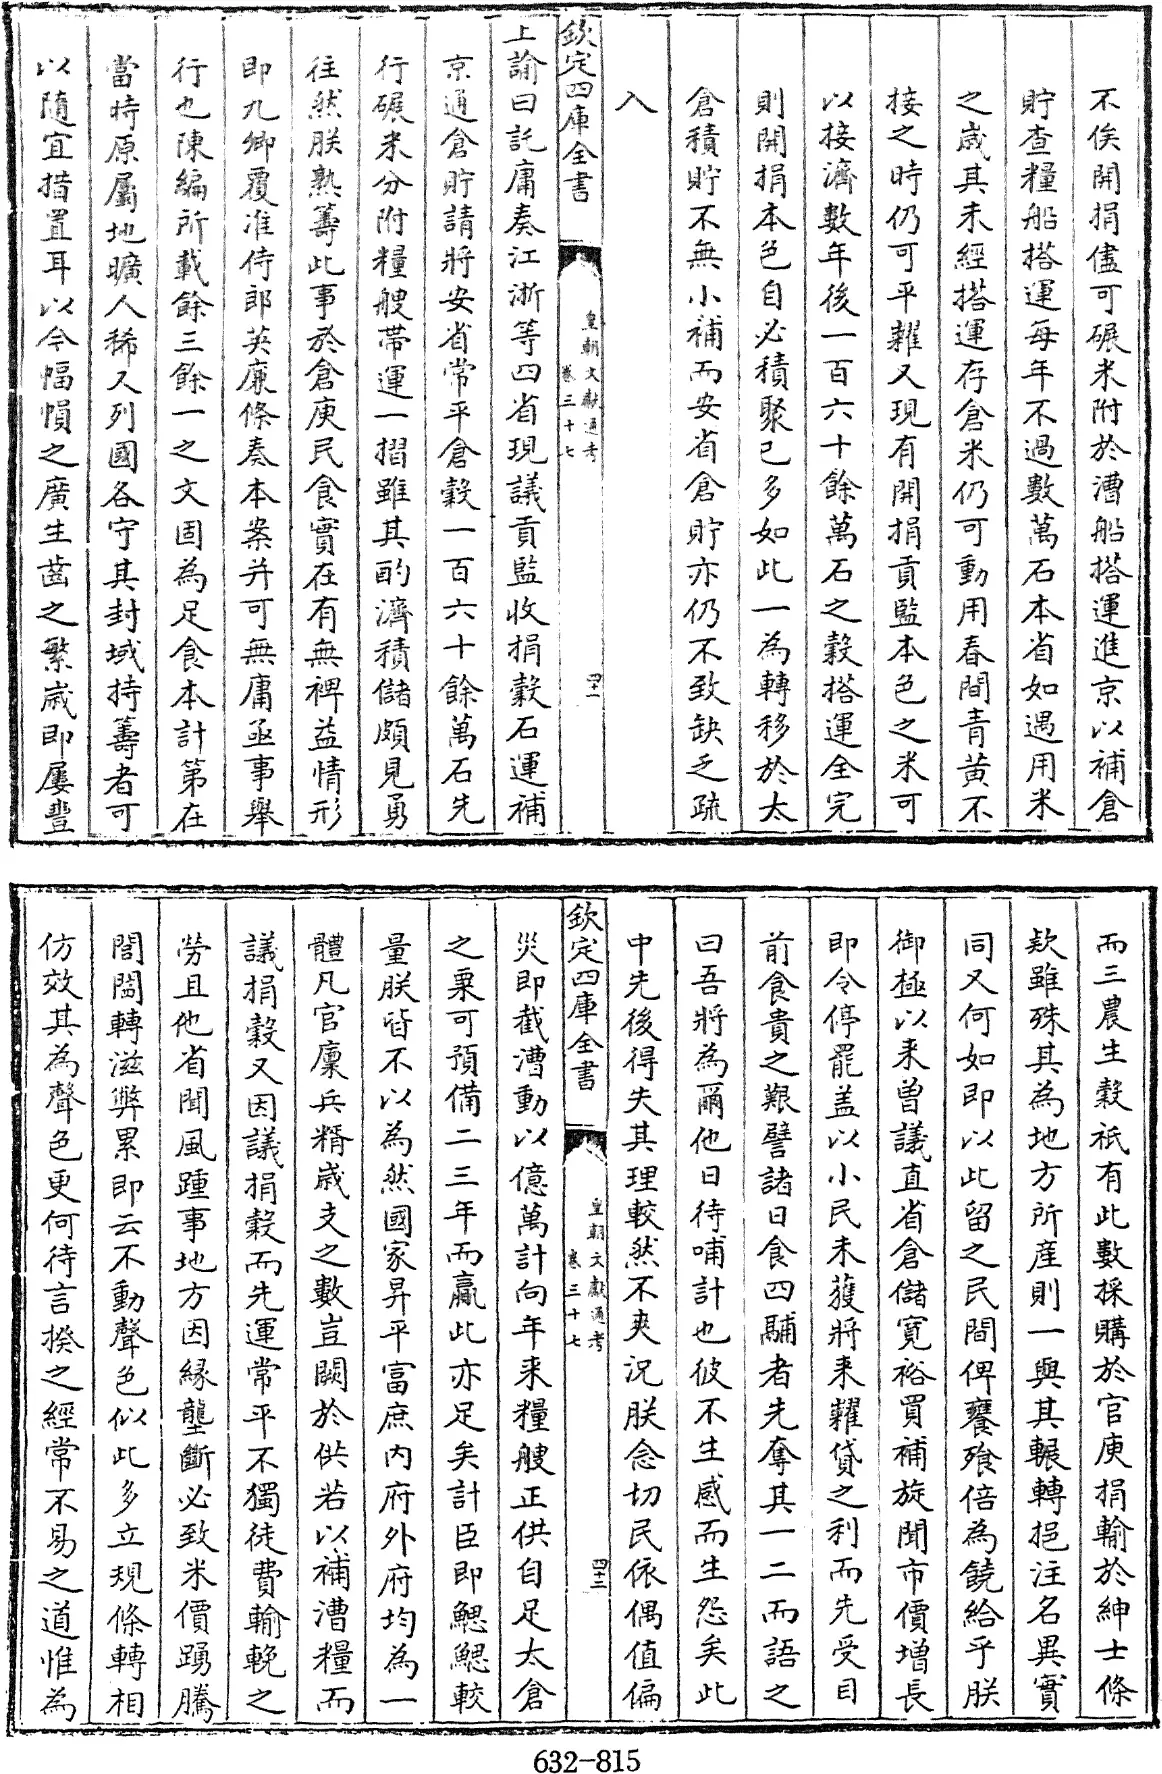 不俟開捐儘可碾米附於漕船搭運進京以補倉
貯查糧船搭運每年不過數萬石本省如遇用米
之歲其未經搭運存倉米仍可動用春間青黃不
接之時仍可平糶又現有開捐貢監本色之米可
以接濟數年後一百六十餘萬石之穀搭運全完
則開捐本色自必積聚已多如此一為轉移於太
倉積貯不無小補而安省倉貯亦仍不致缺乏疏
入
欽定四庫全書
皇朝文獻通考
卷三十七
四十二
上諭曰託庸奏江浙等四省現議貢監收捐穀石運補
京通倉貯請將安省常平倉穀一百六十餘萬石先
行碾米分附糧艘帶運一摺雖其酌濟積儲頗見勇
往然朕熟籌此事於倉庾民食實在有無裨益情形
即九卿覆准侍郎英廉條奏本案并可無庸亟事舉
行也陳編所載餘三餘一之文固為足食本計第在
當時原屬地曠人稀又列國各守其封域持籌者可
以隨宜措置耳以今幅幀之廣生齒之繁歲即屢豐
而三農生穀祇有此數採購於官庾捐輸於紳士條
欵雖殊其為地方所産則一與其輾轉挹注名異實
同又何如即以此留之民間俾饔飱倍為饒給乎朕
御極以来曾議直省倉儲寛裕買補旋聞市價增長
即令停罷盖以小民未獲將来糶貸之利而先受目
前食貴之艱譬諸日食四鬴者先奪其一二而語之
曰吾將為爾他日待哺計也彼不生感而生怨矣此
中先後得失其理較然不爽況朕念切民依偶值偏
欽定四庫全書
皇朝文獻通考
卷三十七
四十三
災即截漕動以億萬計向年来糧艘正供自足太倉
之粟可預備二三年而贏此亦足矣計臣即鰓鰓較
量朕皆不以為然國家昇平富庶内府外府均為一
體凡官廩兵糈歲支之數豈闕於供若以補漕糧而
議捐穀又因議捐穀而先運常平不獨徒費輸輓之
勞且他省聞風踵事地方因緣壟斷必致米價踴騰
閭閻轉滋弊累即云不動聲色似此多立規條轉相
仿效其為聲色更何待言揆之經常不易之道惟為
632-815